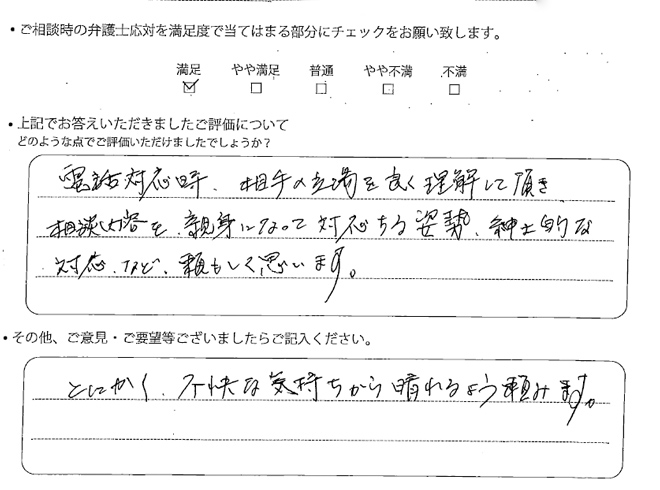 ・ご相談時の弁護士応対を満足度で当てはまる部分にチェックをお願い致します。
満足 やや満足 普通 やや不満 不満
・上記でお答えいただきましたご評価について
どのような点でご評価いただけましたでしょうか?
電話対応時、相手の立場を良く理解して頂き
相談内容を、親身になって対応する姿勢、紳士的な
対応、など、頼もしく思います。
・その他、ご意見・ご要望等ございましたらご記入ください。
とにかく、不快な気持ちから晴れるよう頼みます。